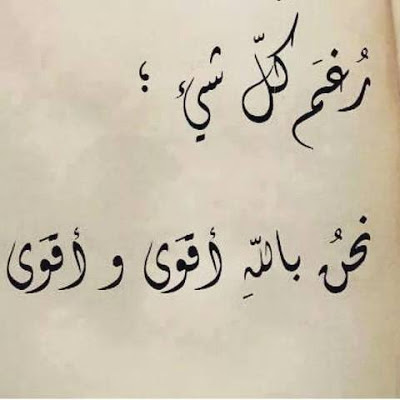 رُغم كلّ شيٍ ؛
نحنُ باللّهِ أقوَى و أقوَى